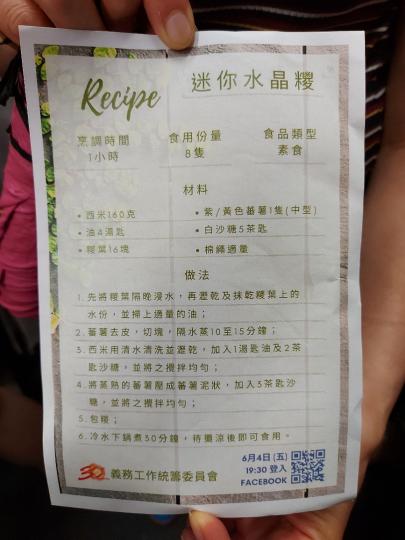 Recipe
迷你水晶糉
烹調時間
1小時
食用份量
8隻
食品類型
素食
材料
• 西米160克
• 油4湯匙
• 糉葉16塊
• 紫/黃色番薯1隻(中型)
• 白沙糖5茶匙
• 棉繩適量
做法
1. 先將糉葉隔晚浸水，再瀝乾及抹乾糉葉上的
水份，並掃上適量的油；
2. 番薯去皮，切塊，隔水蒸10至15分鐘；
3. 西米用清水清洗並瀝乾，加入1湯匙油及2茶
匙沙糖，並將之攪拌均勻；
4. 將蒸熟的番薯壓成蕃薯泥狀，加入3茶匙沙
糖，並將之攪拌均勻；
5. 包糉；
6. 冷水下鍋煮30分鐘，待攤涼後即可食用。
30 義務工作統籌委員會
6月4日(五)
19:30 登入
FACEBOOK